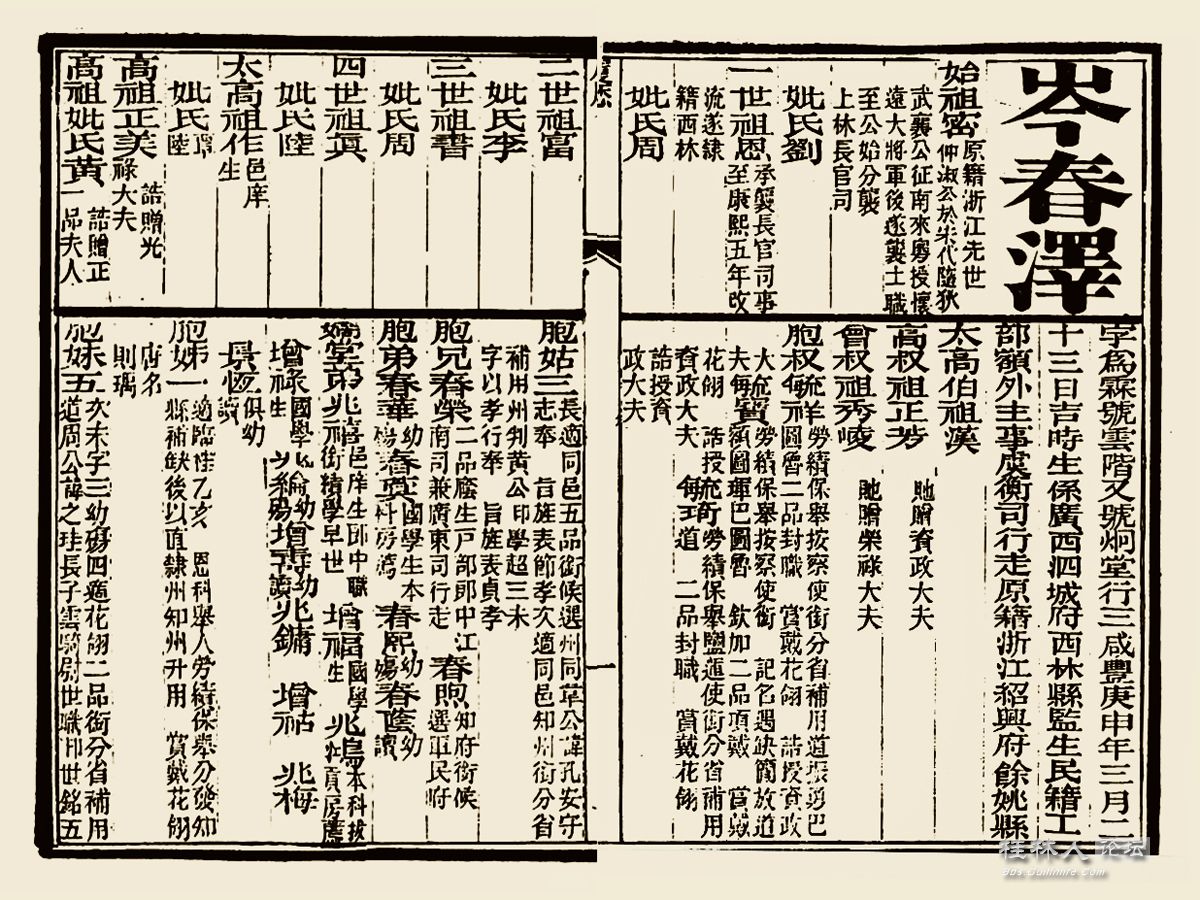 岑春澤
字爲霖號雲階又號炯堂行三咸豐庚申年三月二
十三日吉時生係廣西泗城府西林縣監生民籍工
部額外主事虞衡司行走原籍浙江紹興府餘姚縣
始祖密
原籍浙江先世
仲淑公於宋代隨狄
武襄公征南來粵授懷
遠大將軍後遂襲土職
至公始分襲
上林長官司
妣氏劉
一世祖恩
承襲長官司事
至康熙五年改
流遂隸
籍西林
妣氏周
太高伯祖漢
高叔祖正芳 貤贈資政大夫
曾叔祖秀崚 貤贈榮祿大夫
胞叔毓祥
勞績保舉按察使銜分省補用道振勇巴
圖魯二品封職 賞戴花翎 誥授資政
大夫
毓寶
勞績保舉按察使銜 記名遇缺簡放道
額圖琿巴圖魯 欽加二品頂戴 賞戴
花翎 誥授
資政大夫
毓琦
勞績保舉鹽運使銜分省補用
道 二品封職 賞戴花翎
誥授資
政大夫
二世祖富
妣氏李
三世祖書
妣氏周
四世祖眞
妣氏陸
太高祖作
邑庠
生
妣氏陸
高祖正美
誥贈光
祿大夫
高祖妣氏黃
誥贈正
一品夫人
胞姑三
長適同邑五品銜候選州同覃公諱孔安守
志奉 旨旌表節孝次適同邑知州銜分省
補用州判黃公印學超三未
字以孝行奉 旨旌表貞孝
胞兄春榮
二品廕生戶部郎中江
南司兼廣東司行走
春煦
知府銜候
選軍民府
胞弟春華
幼殤
春蓂
國學生本
科房薦
春熙
幼殤
春蔭
幼讀
嫡堂弟兆禧
邑庠生郎中職
銜積學早世
增福
國學
生
兆鳴
本科拔
貢房薦
增祿
國學
生
增壽
幼讀
兆鏞 增祜 兆梅
景恆
俱幼
讀
胞姊一
適臨桂乙亥 恩科舉人勞績保舉分發知
縣補缺後以直隸州知州升用 賞戴花翎
唐名
則瑀
胞妹五
次未字三幼殤四適花翎二品銜分省補用
道周公諱之珪長子雲騎尉世職印世銘五
桂林人论坛
bbs.Guilinlife.com